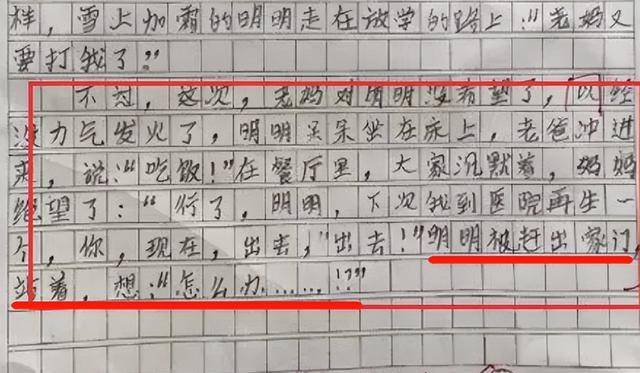 样，雪上加霜的明明走在放学的路上："老妈又
要打我了？"
不过，这次，老妈对明明没希望了，以经
没力气发火了，明明呆呆坐在床上，老爸冲进
来，说："吃饭！"在餐厅里，大家沉默着，妈妈
绝望了："行了，明明，下次我到医院再生一
个，你，现在，出去，"出去！"明明被赶出家门，
站着，想："怎么办……！？"